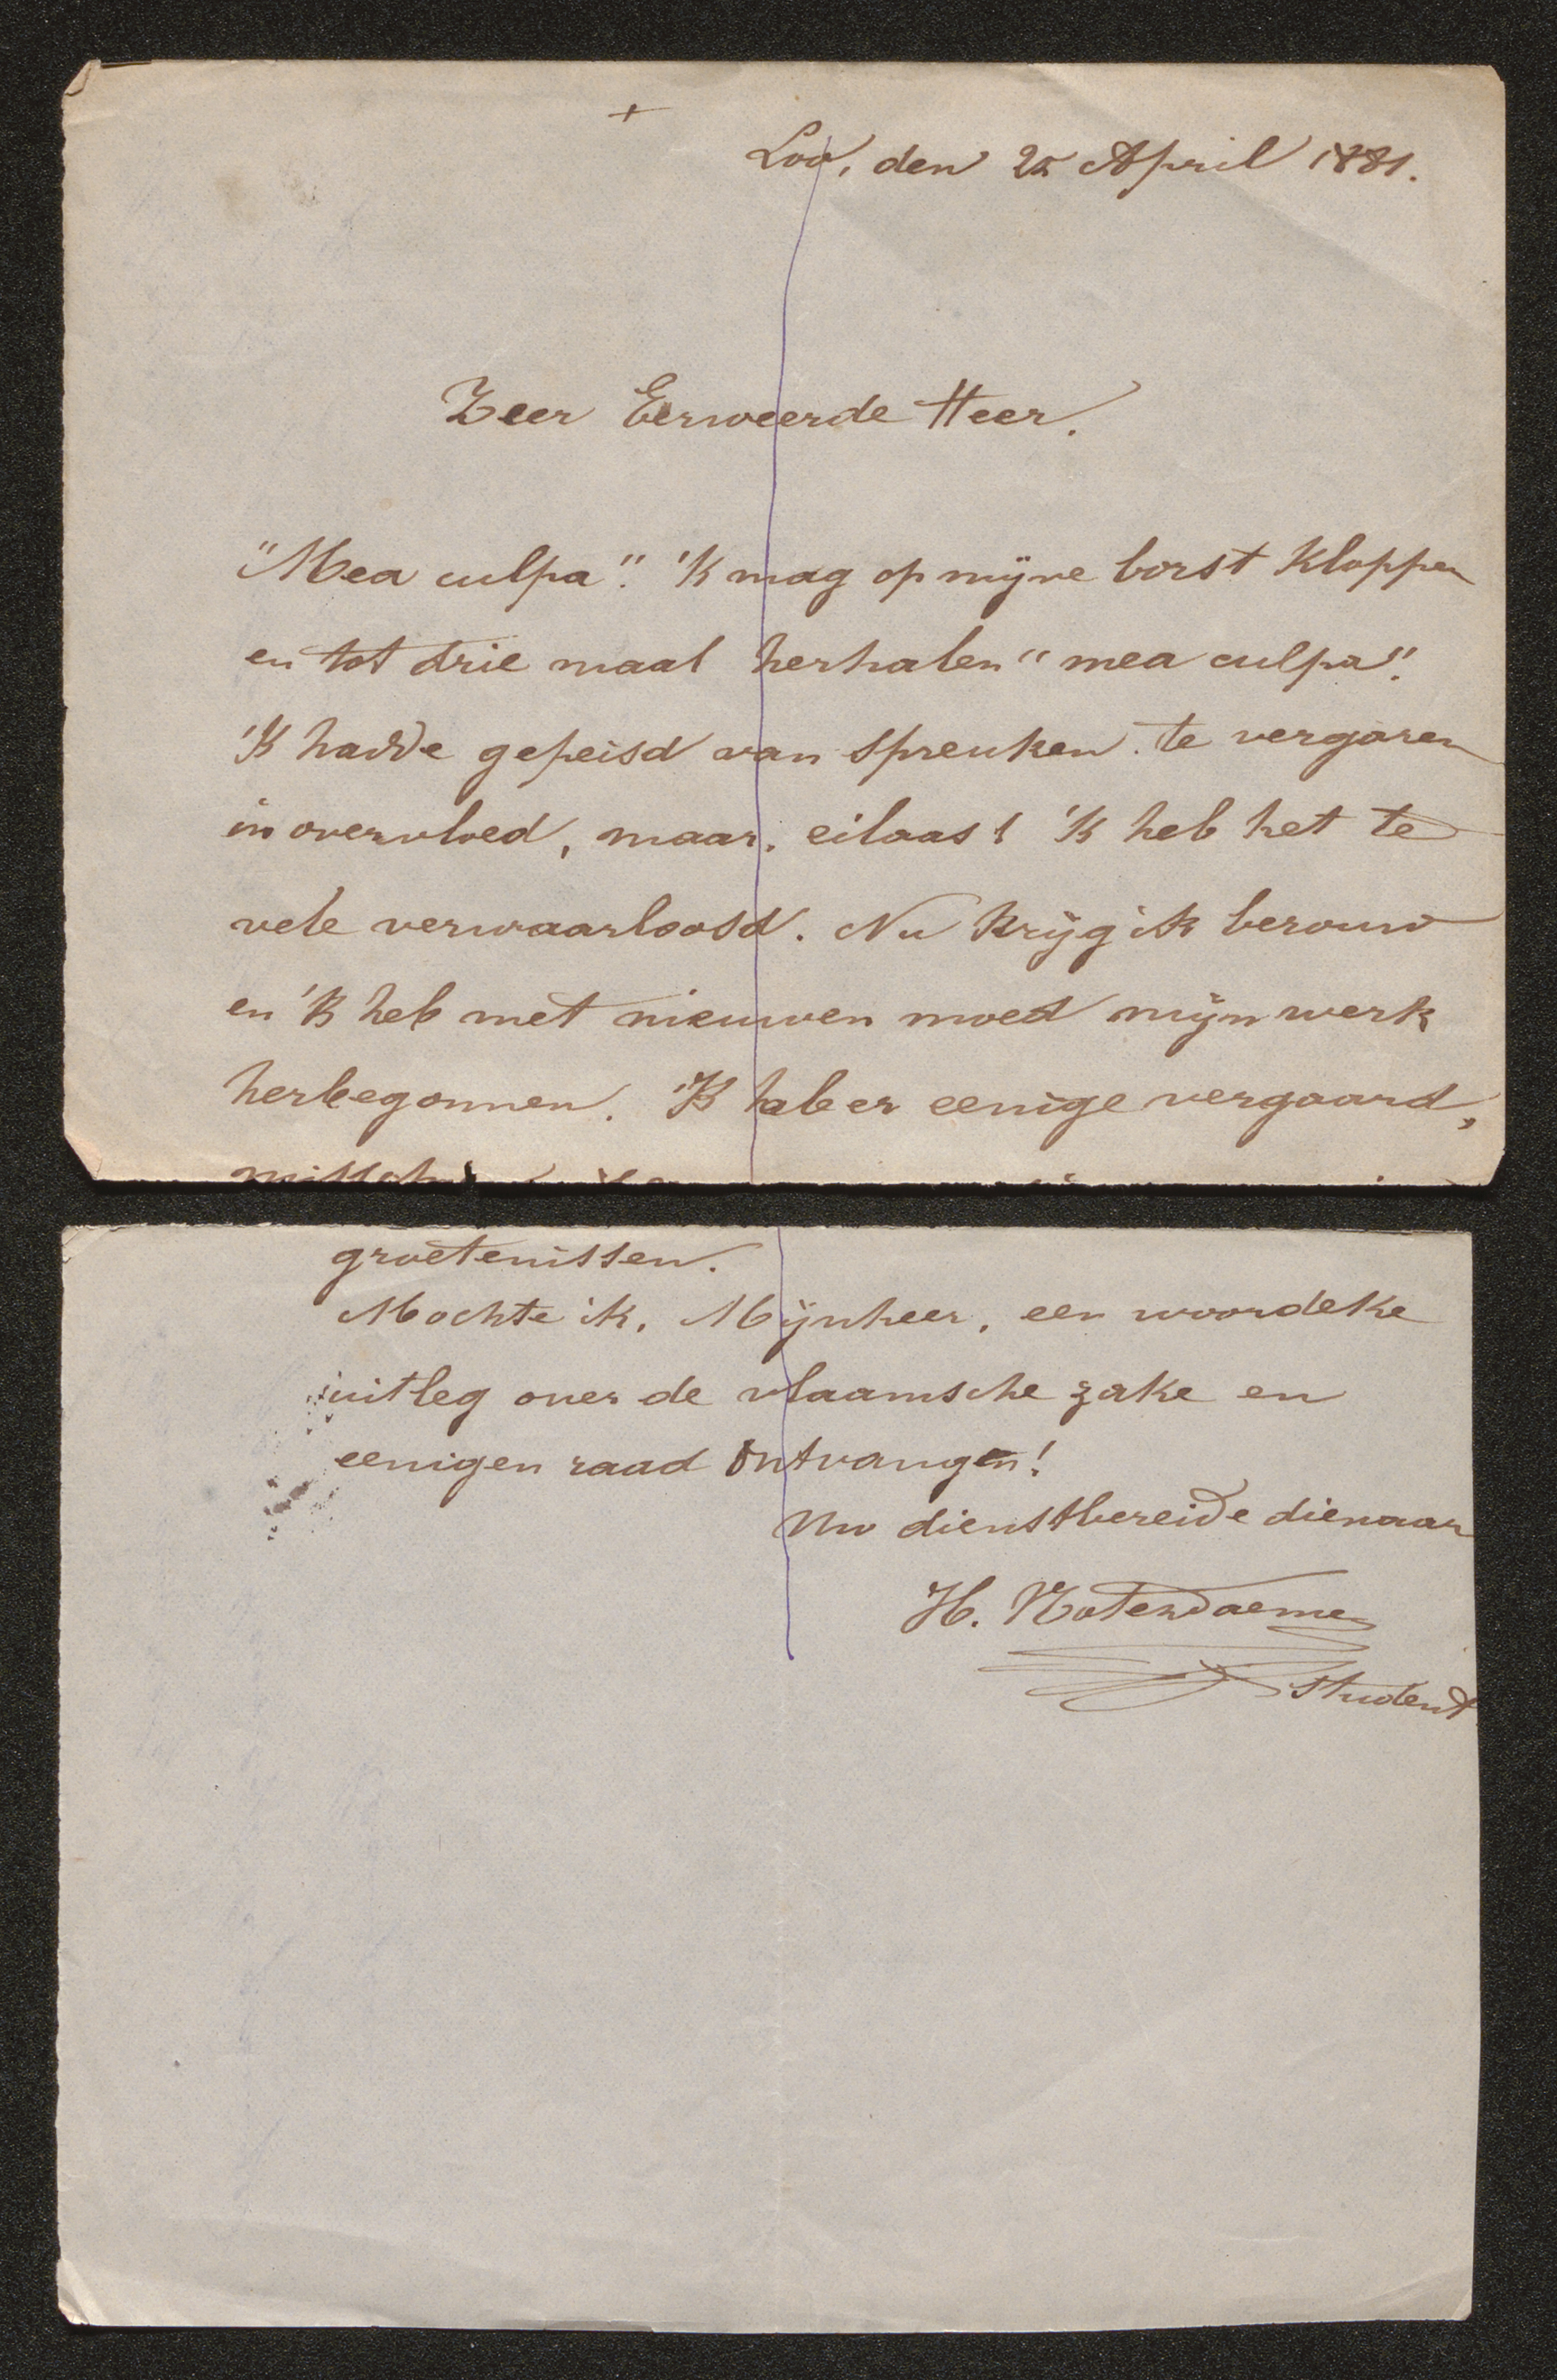 +
Loo, den 25 April 1881.
Zeer Eerweerde Heer.
"Mea culpa". 'k mag op mijne borst kloppen
en tot drie maal herhalen "mea culpa".
'k hadde gepeisd van spreuken te vergaren
in overvloed, maar, eilaas! 'k heb het te
vele verwaarloosd. Nu krijg ik berouw
en 'k heb met nieuwen moed mijn werk
herbegonnen. 'k heb er eenige vergaard,
groetenissen.
Mochte ik, Mijnheer, een woordeke
uitleg over de vlaamsche zake en
eenigen raad ontvangen!
Uw dienstbereide dienaar
H. Noterdaeme
Student